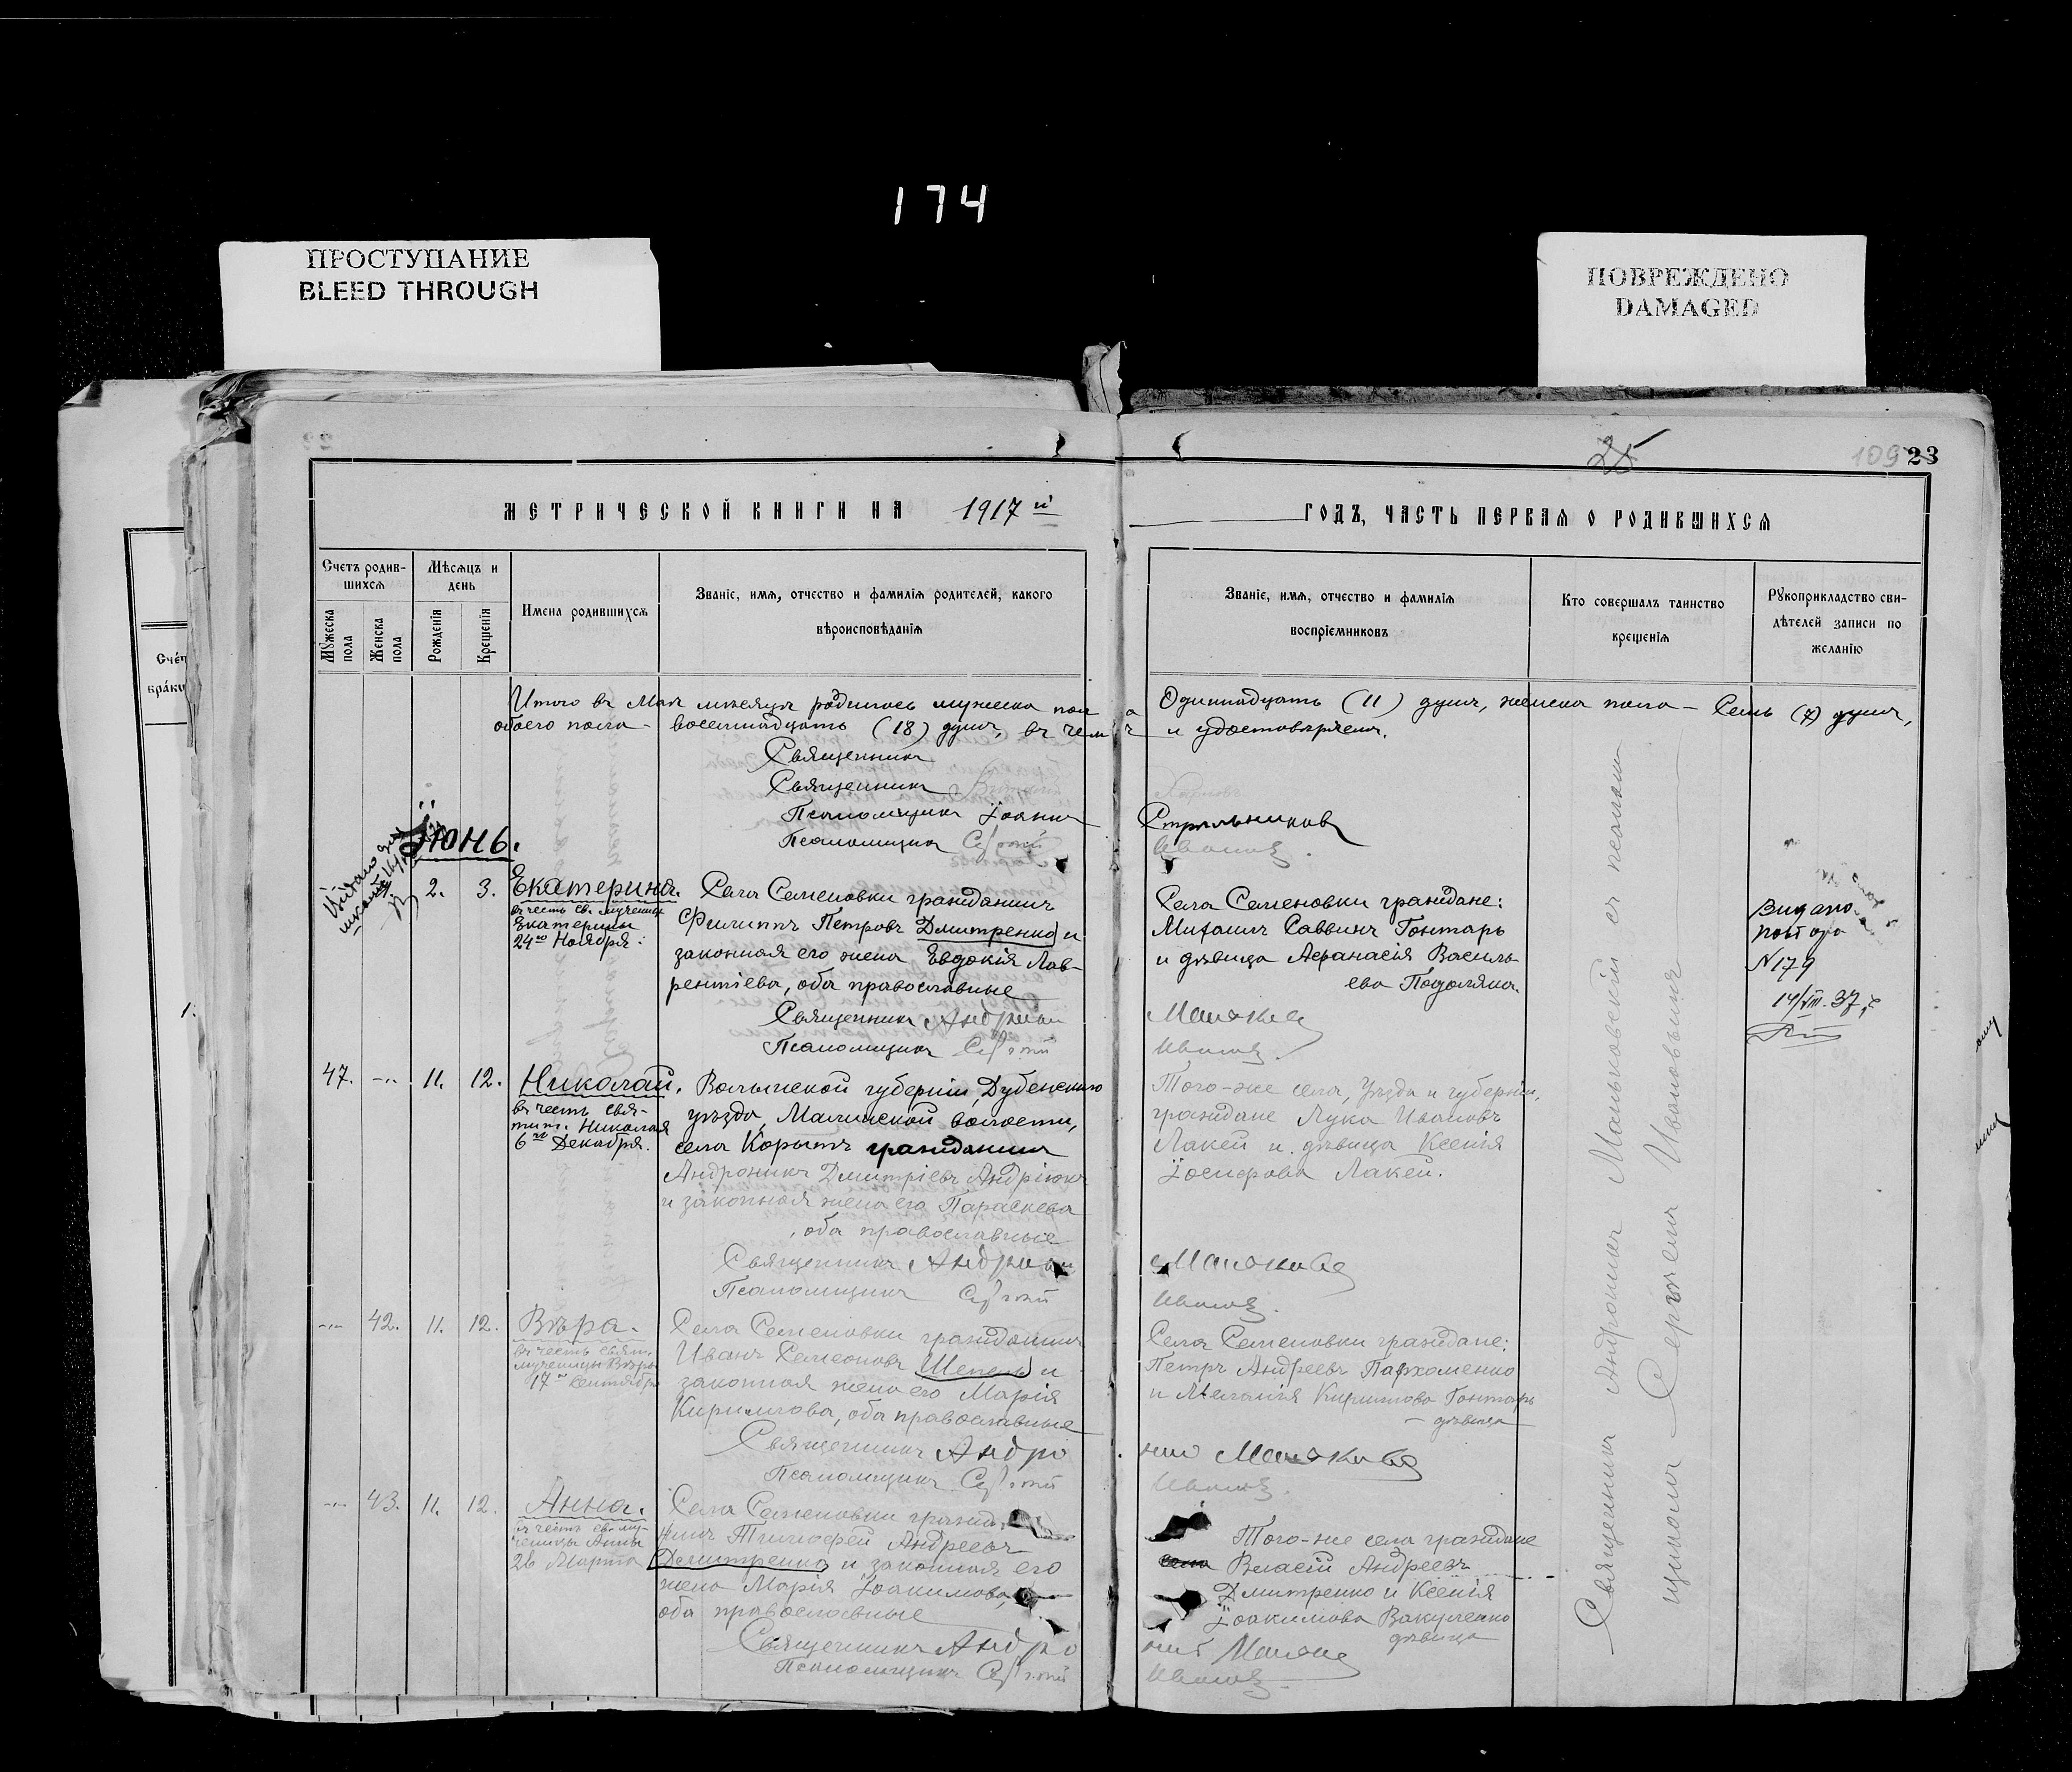 174
ПРОСТУПАНИЕ
BLEED THROUGH
ПОВРЕЖДЕНО
DAMAGED
25
109 23
МЕТРИЧЕСКОЙ КНИГИ НА 1917 й
ГОДЪ, ЧАСТЬ ПЕРВАЯ О РОДИВШИХСЯ
Счетъ родив-
шихся
Мужеска
пола
Женска
пола
Мѣсяцъ и
день
Рожденія
Крещенія
Имена родившихся
Званіе, имя, отчество и фамилія родителей, какого
вѣроисповѣданія
Званіе, имя, отчество и фамилія
воспріемниковъ
Кто совершалъ таинство
крещенія
Рукоприкладство сви-
дѣтелей записи по
желанію
Счéт
бракó
1.
Итого въ Маѣ мѣсяцѣ родилось мужеска пола Одиннадцать (11) душъ, женска пола – Семь (7) душъ,
обоего пола – восемнадцать (18) душъ, въ чемъ и удостовѣряемъ.
Священникъ
Священникъ
Псаломщикъ Іоаннъ Стрѣльниковъ
Псаломщикъ Сергій Ивановъ.
Іюнь.
2. 3. Екатерина.
въ честь св. мученицы
Екатерины
24го Ноября.
Села Семеновки гражданинъ
Филиппъ Петровъ Дмитренко и
законная его жена Евдокія Лав-
рентіева, оба православные
Священникъ
Псаломщикъ Сергій Ивановъ.
Села Семеновки граждане:
Михаилъ Саввинъ Гонтарь
и дѣвица Афанасія Василь-
ева Подоляка.
Видано
повторо
N 179
14/VIII. 37 р
47. -"- 11. 12. Николай.
въ честь свя-
тит. Николая
6го Декабря.
Волынской губерніи, Дубенскаго
уѣзда, Малинской волости,
села Корытъ гражданинъ
Андроникъ Дмитріевъ Андріюкъ
и законная жена его Параскева
, оба православные
Священникъ
Псаломщикъ Сергій Ивановъ.
Того-же села, уѣзда и губерніи,
граждане Лука Ивановъ
Лакей и дѣвица Ксенія
Іосифова Лакей.
-"- 42. 11. 12. Вѣра.
въ честь свят.
мученицы Вѣры
17го Сентября
Села Семеновки гражданинъ
Иванъ Семеоновъ Шепель и
законная жена его Марія
Кириллова, оба православные
Священникъ
Псаломщикъ Сергій Ивановъ.
Села Семеновки граждане:
Петръ Андреевъ Пархоменко
и Меланія Кириллова Гонтарь
– дѣвица
-"- 43. 11. 12. Анна.
въ честь св. му-
ченицы Анны
26 Марта
Села Семеновки гражда
нинъ Тимофей Андреевъ
Дмитренко и законная его
жена Марія Іоакимова,
оба православные
Священникъ
Псаломщикъ Сергій Ивановъ.
Того-же села граждане
Власій Андреевъ
Дмитренко и Ксенія
Іоакимова Вакуленко
дѣвица
Священникъ Андроникъ Маньковскій съ псалом
щикомъ Сергіемъ Ивановымъ